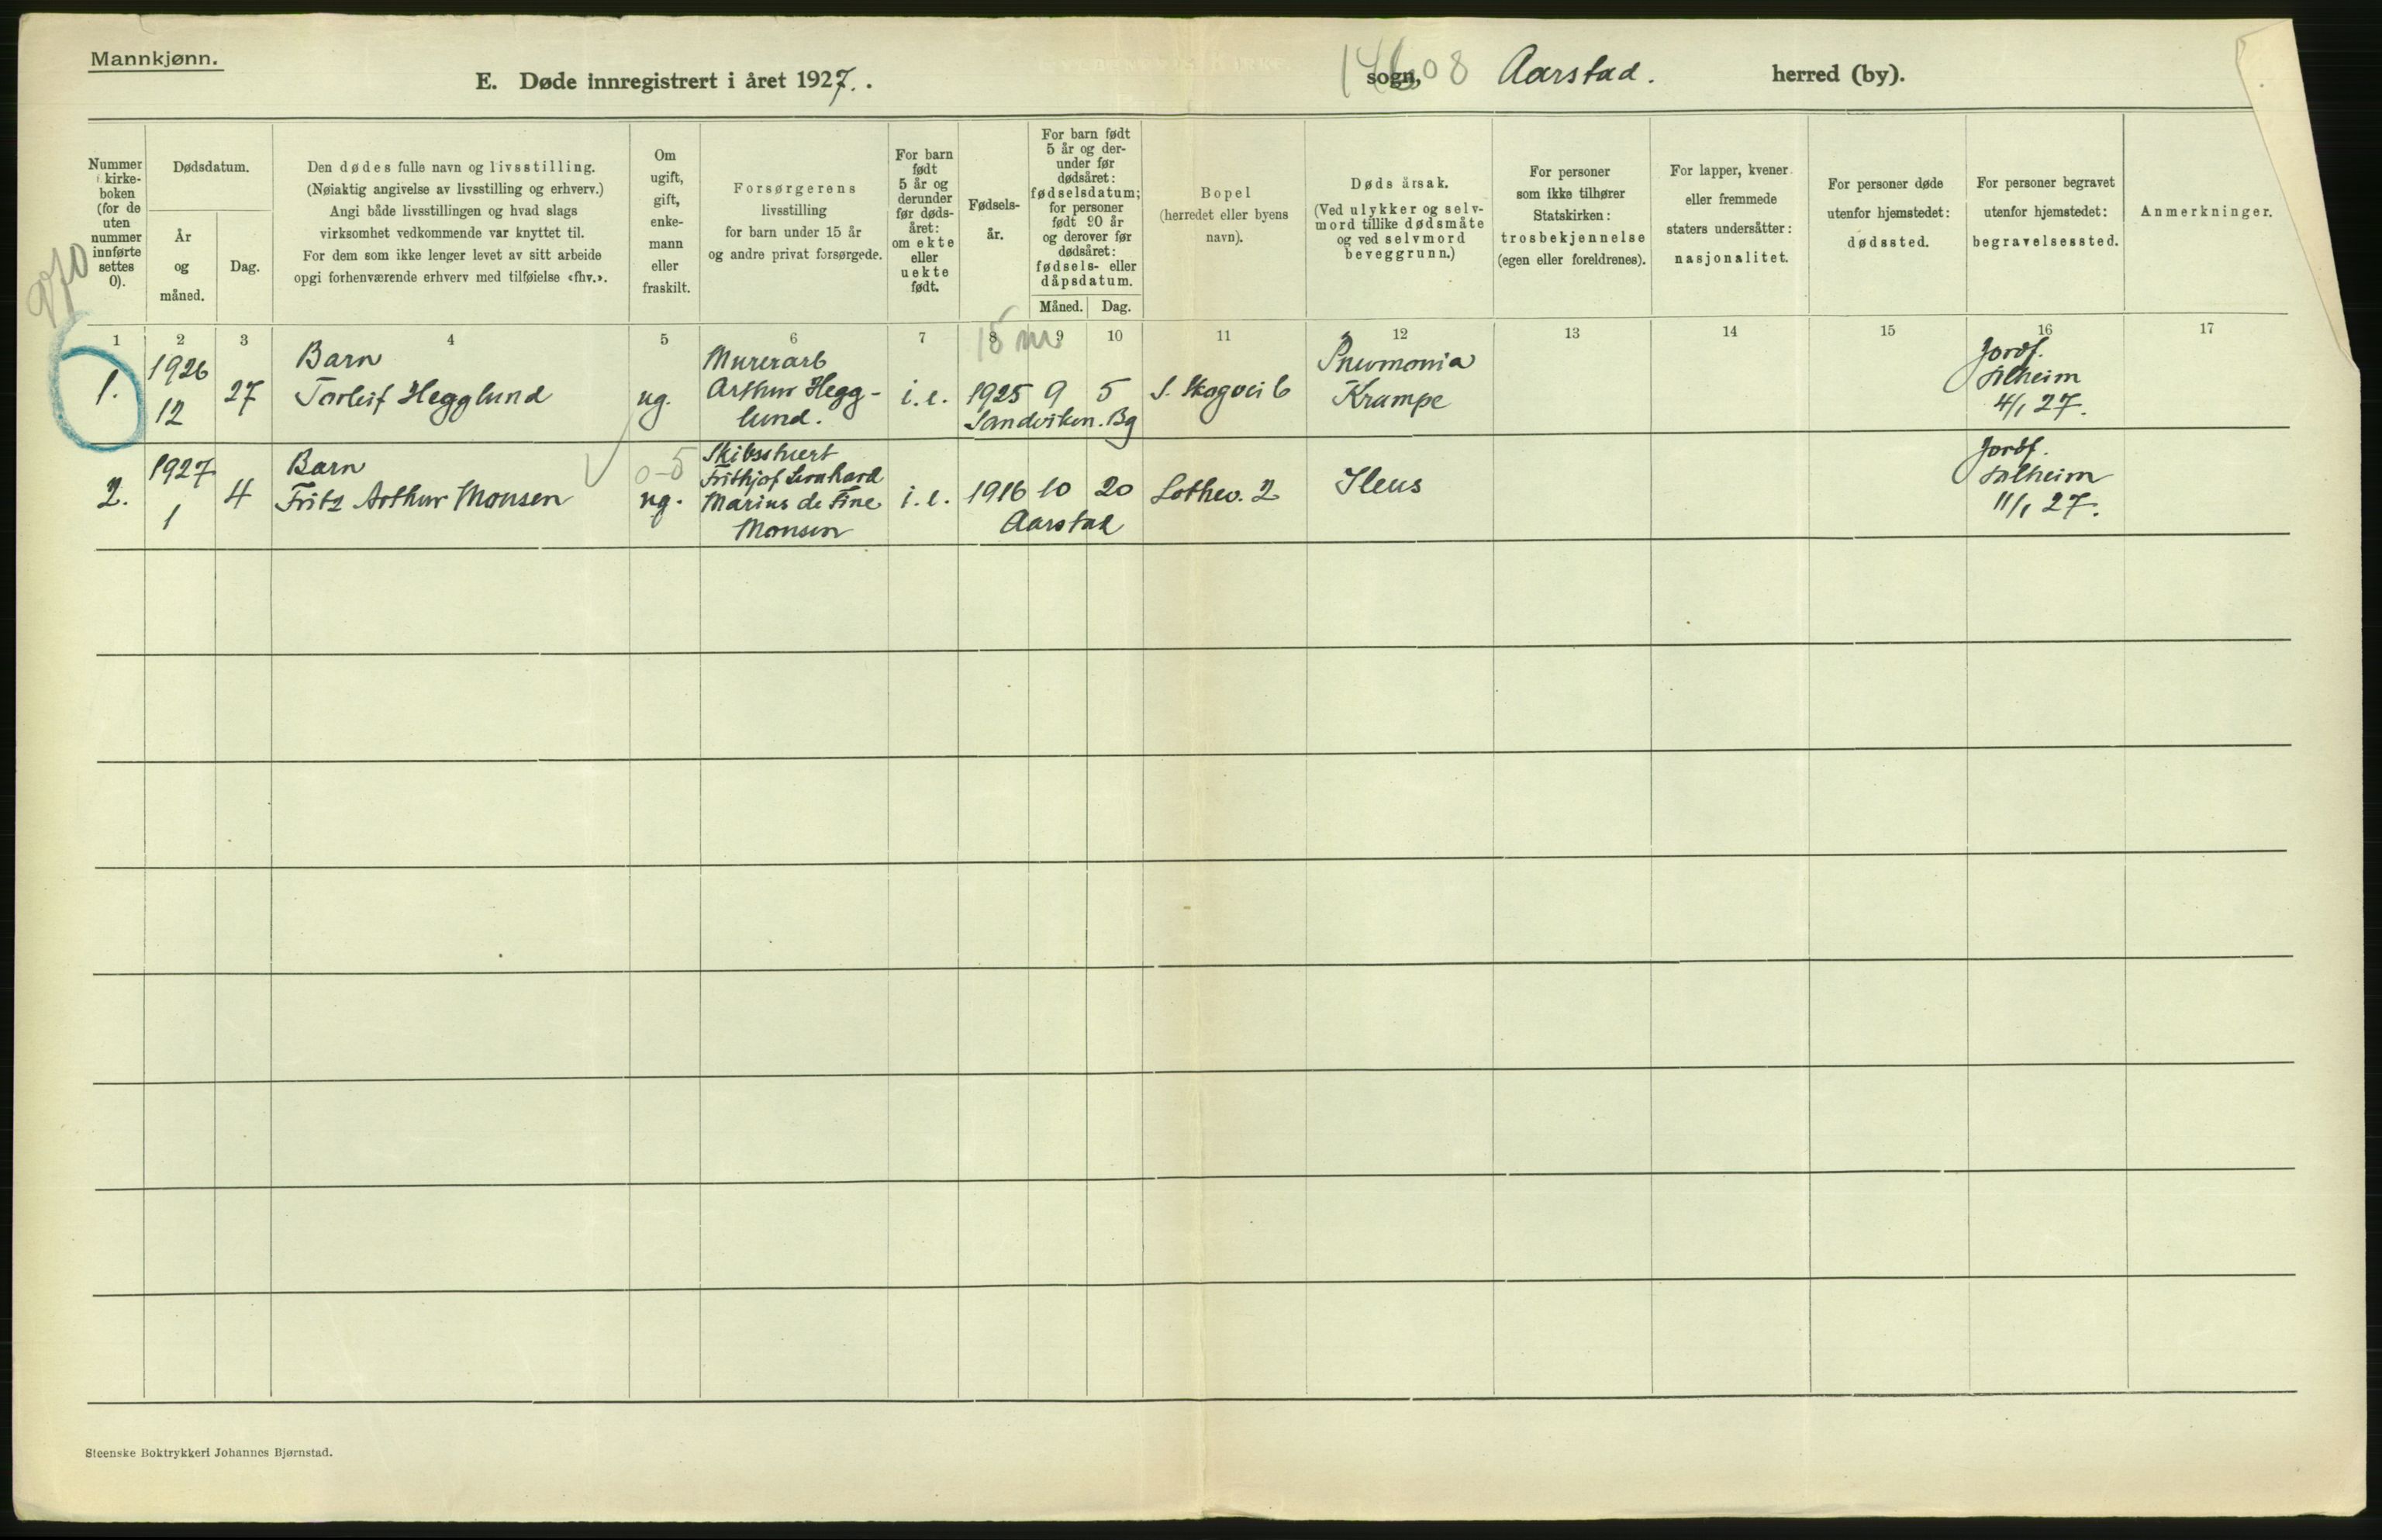 Mannkjønn.
E. Døde innregistrert i året 1927. .
sogn, Aarstad. herred (by).
Nummer i kirke-boken (for de uten nummer innførte settes 0).
Dødsdatum.
År og måned.
Dag.
Den dødes fulle navn og livsstilling.
(Nøiaktig angivelse av livsstilling og erhverv.)
Angi både livsstillingen og hvad slags
virksomhet vedkommende var knyttet til.
For dem som ikke lenger levet av sitt arbeide
opgi forhenværende erhverv med tilføielse «fhv.».
Om ugift, gift, enke-mann eller fraskilt.
Forsørgerens
livsstilling
for barn under 15 år
og andre privat forsørgede.
For barn født 5 år og derunder før døds-året: om ekte eller uekte født.
Fødsels-år.
For barn født 5 år og der-under før dødsåret: fødselsdatum; for personer født 90 år og derover før dødsåret: fødsels- eller dåpsdatum.
Måned. Dag.
Bopel
(herredet eller byens
navn).
Dødsårsak.
(Ved ulykker og selv-
mord tillike dødsmåte
og ved selvmord
beveggrunn.)
For personer
som ikke tilhører
Statskirken:
trosbekjennelse
(egen eller foreldrenes).
For lapper, kvener
eller fremmede
staters undersåtter:
nasjonalitet.
For personer døde
utenfor hjemstedet:
dødssted.
For personer begravet
utenfor hjemstedet:
begravelsessted.
Anmerkninger.
1 2 3 4 5 6 7 8 9 10 11 12 13 14 15 16 17
15 m
1. 1926 12 27 Barn
Torleif Hegglund ug. Murerarb
Arthur Hegg-
lund. i.e. 1925 9 5
Sandviken. Bg
S. Skogvei 6 Pneumonia
Krampe
Jordf.
Solheim
4/1 27.
2. 1927 1 4 Barn
Fritz Arthur Monsen 0-5
ug. Skibsstuert
Frithjof Leonhard
Marius de Fine
Monsen i.e. 1916 10 20
Aarstad
Lothev. 2 Ileus
Jordf.
Solheim
11/1 27.
Steenske Boktrykkeri Johannes Bjørnstad.